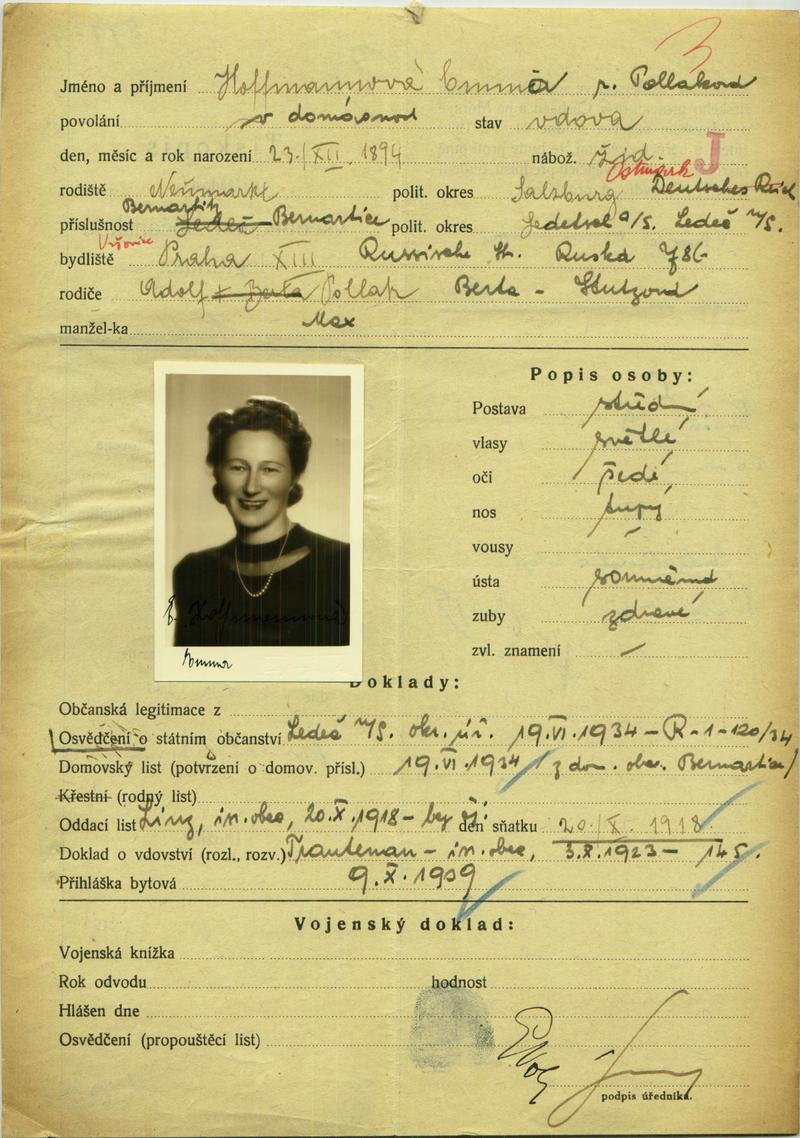 3
Jméno a příjmení Hoffmannová Emma r. Polláková
povolání v domácnosti stav vdova
den, měsíc a rok narození 23./XII. 1894 nábož. žid. J
Ostmark
rodiště Neumarkt polit. okres Salzburg Deutsches Reich
Bernartitz
příslušnost Ledeč Bernartice polit. okres Ledeč n/S.
Vršovice
bydliště Praha XIII Russische St. Ruská
rodiče Adolf + Berta Pollak Berta -
manžel-ka Max
Popis osoby:
Postava střední
vlasy světlé
oči šedé
nos tupý
vousy –
ústa souměrná
zuby zdravé
zvl. znamení –
E. Hoffmannová
Emma
Doklady:
Občanská legitimace z
Osvědčení o státním občanství Ledeč n/S. okr. úř. 19.VI.1934 – R-1-120/34
Domovský list (potvrzení o domov. přísl.) 19.VI.1934 / z dom. obec. Bernartice/
Křestní (rodný list)
Oddací list Linz, is. obec, 20.X.1918 – den sňatku 20./X. 1918
Doklad o vdovství (rozl., rozv.) Trautenau – is. obec, 3.X.1923 – 145.
Přihláška bytová 9.X.1939
Vojenský doklad:
Vojenská knížka
Rok odvodu hodnost
Hlášen dne
Osvědčení (propouštěcí list)
podpis úředníka.